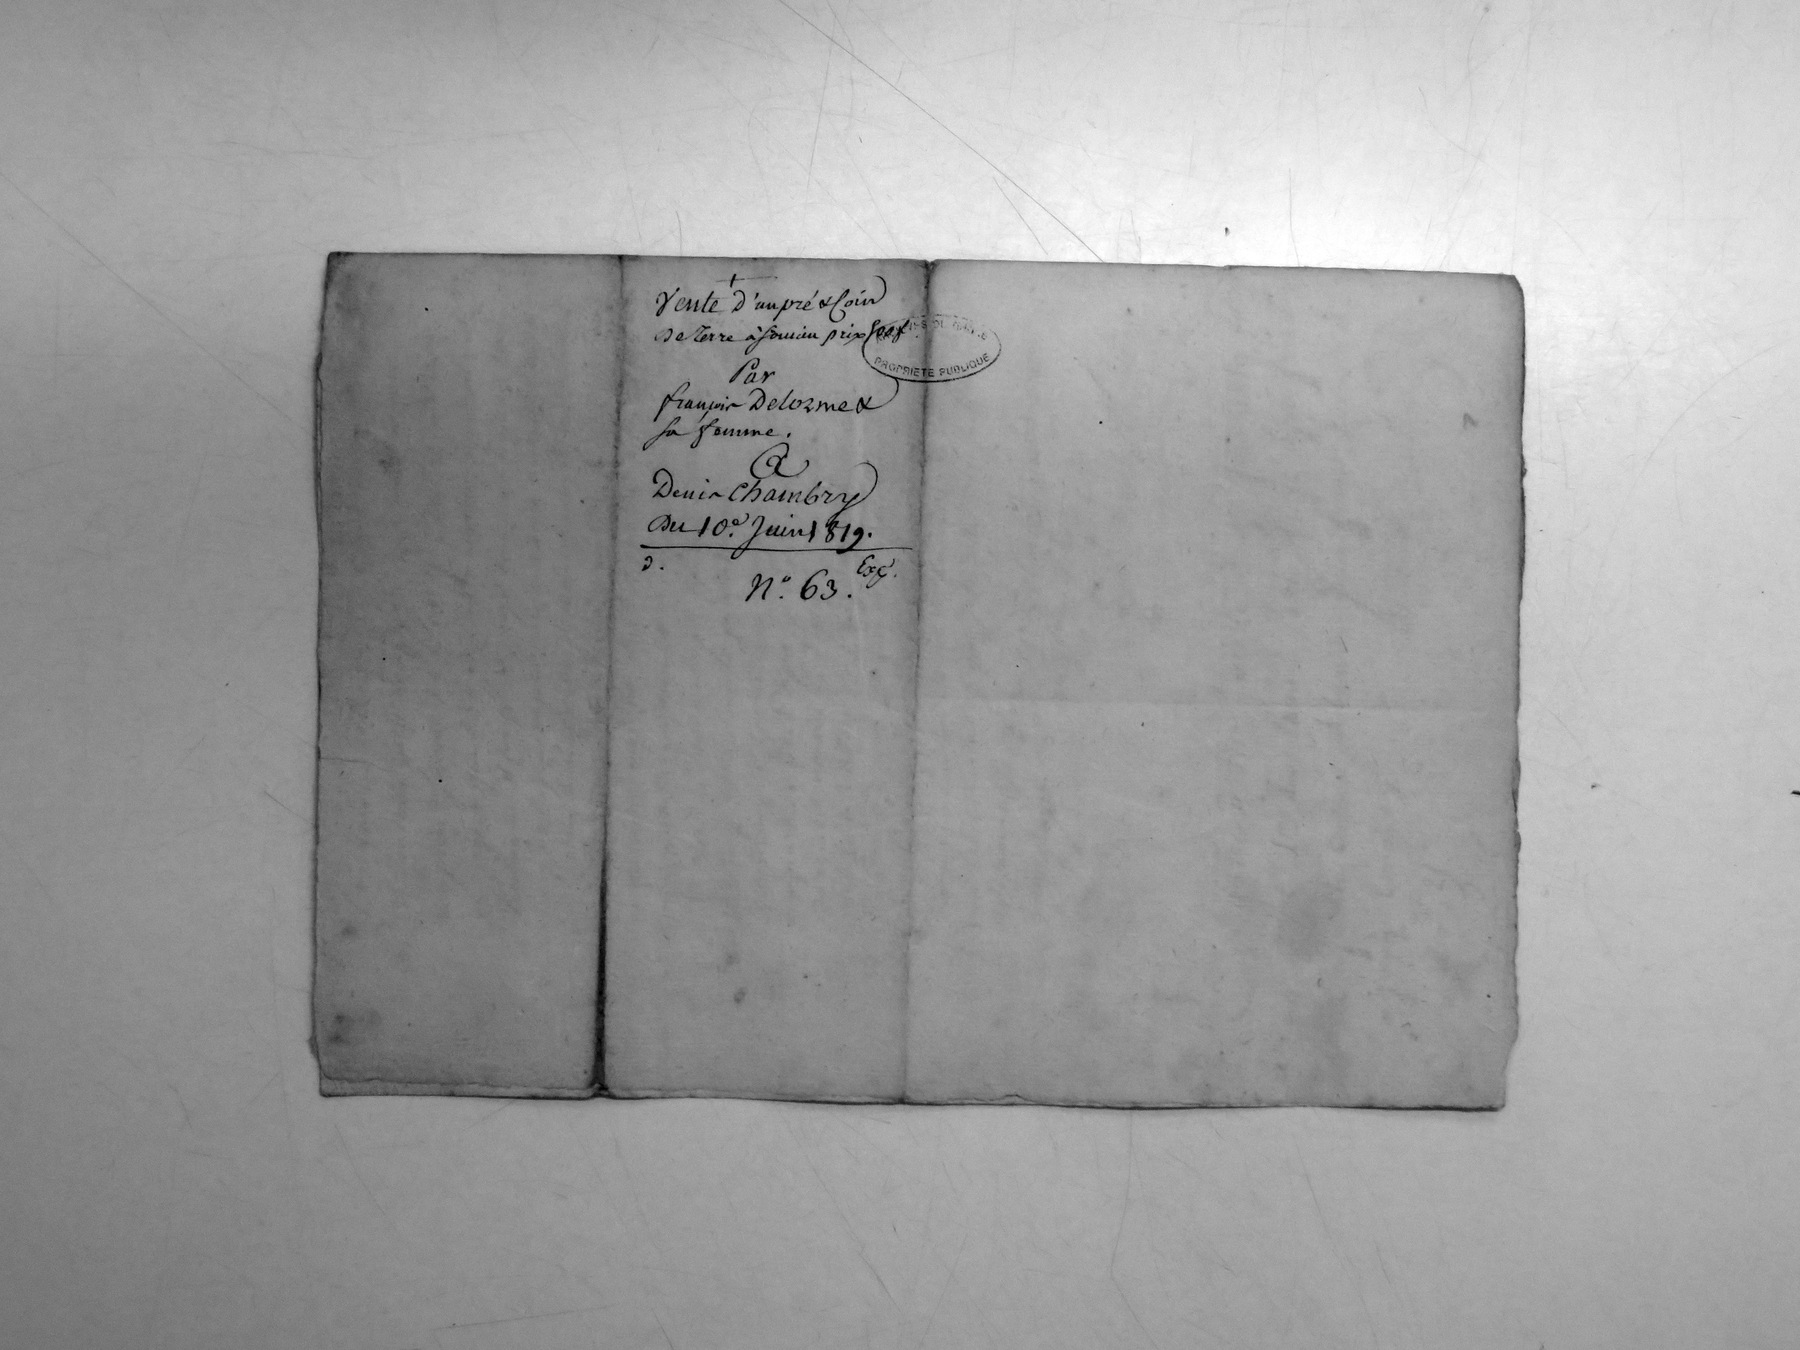 Vente D'un pré & Coin
de Terre à prix
Par
françois Delorme &
sa femme.
A
Denis Chambry
Du 10.e Juin 1819.
D. Exp.
N.o 63.
PROPRIETE PUBLIQUE